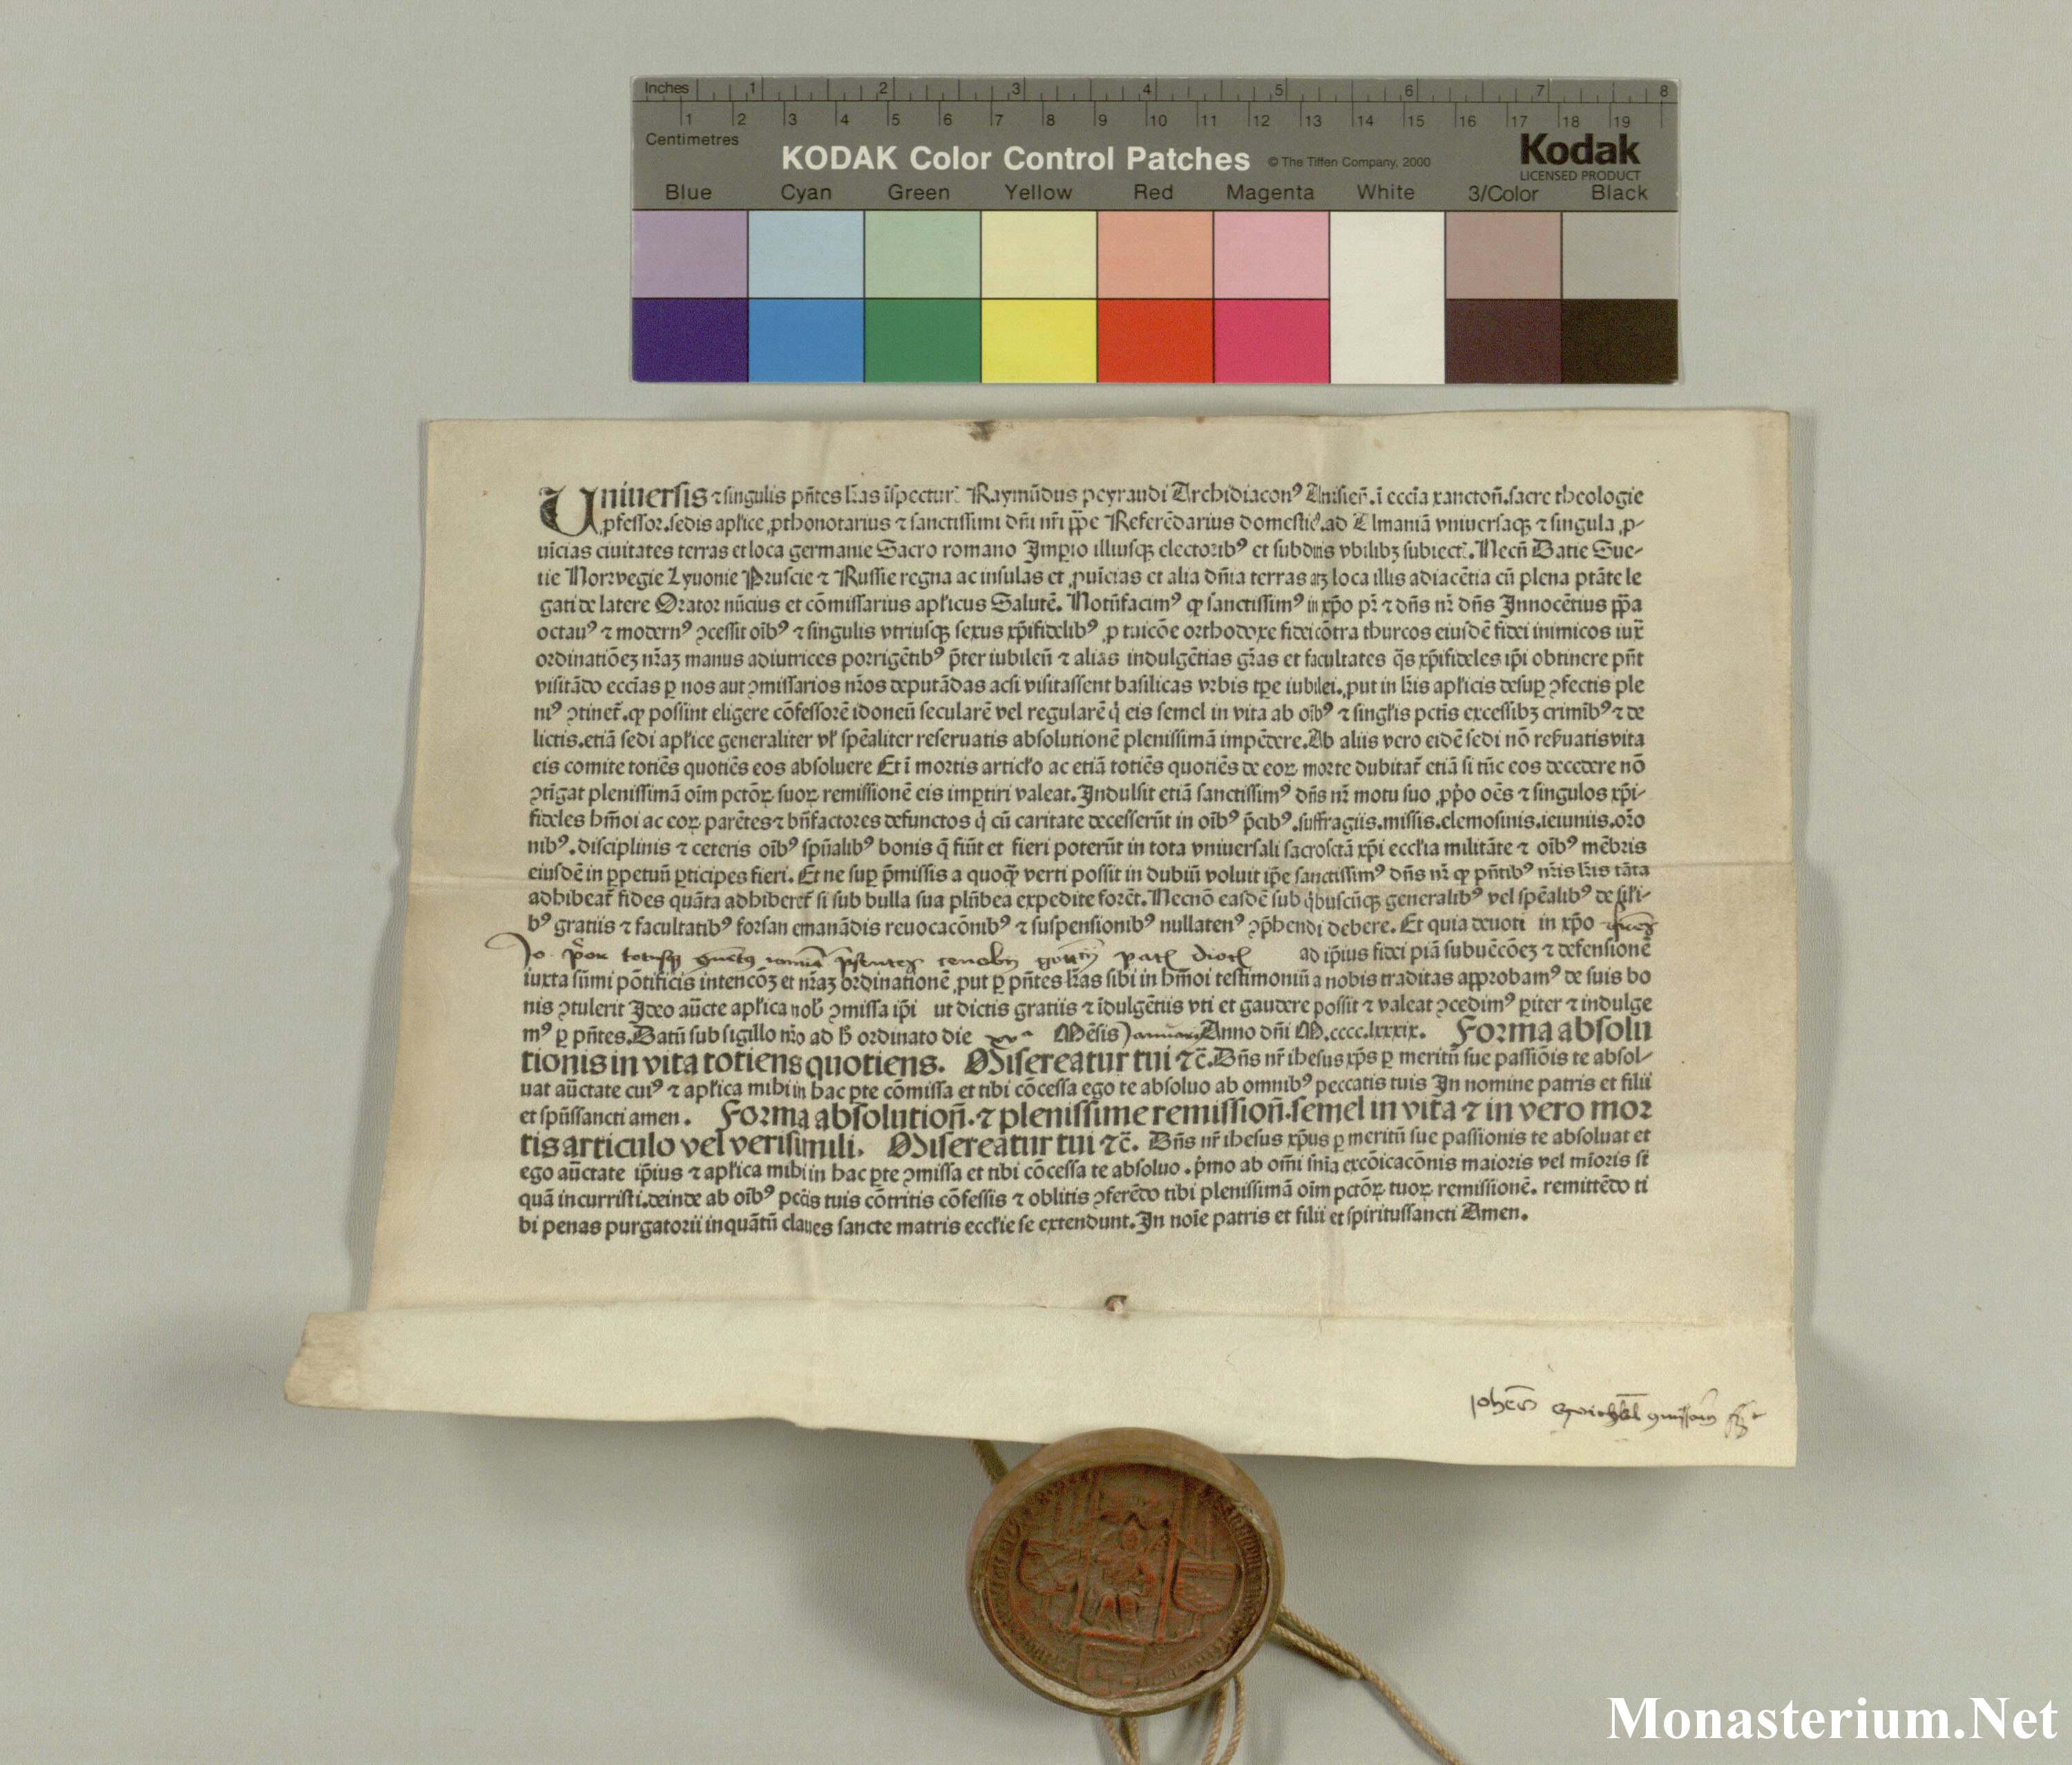 Inches 1 2 3 4 5 6 7 8
1 2 3 4 5 6 7 8 9 10 11 12 13 14 15 16 17 18 19
Centimetres
KODAK Color Control Patches © The Tiffen Company, 2000 Kodak
LICENSED PRODUCT
Blue Cyan Green Yellow Red Magenta White 3/Color Black
Uniuersis ⁊ singulis pñtes lr̃as ĩspectur̃ Raymũdus peyraudi Archidiaconꝰ Alnisieñ. ĩ eccĩa xanctoñ. sacre theologie
ꝓfessor. sedis apl̃ice ꝓthonotarius ⁊ sanctissimi dñi nr̃i pp̃e Referẽdarius domesticꝰ. ad Almaniã vniuersaqꝫ ⁊ singula ꝓ-
uĩcias ciuitates terras et loca germanie Sacro romano Imꝑio illiusqꝫ electoribꝰ et subditis vbilibꝫ subiect̃. Necñ Datie Sue-
tie Noruegie Lyuonie Pruscie ⁊ Russie regna ac insulas et ꝓuĩcias et alia dñia terras atqꝫ loca illis adiacẽtia cũ plena ptãte le
gati de latere Orator nũcius et cõmissarius apl̃icus Salutẽ. Notũfacimꝰ ꝙ sanctissimꝰ in xp̃o pr̃ ⁊ dñs nr̃ dñs Innocẽtius pp̃a
octauꝰ ⁊ modernꝰ ꝯcessit oĩbꝰ ⁊ singulis vtriusqꝫ sexus xp̃ifidelibꝰ ꝓ tuicõe orthodoxe fidei cõtra thurcos eiusdẽ fidei inimicos iux̃
ordinatiõeꝫ nr̃aꝫ manus adiutrices porrigẽtibꝰ p̃ter iubileũ ⁊ alias indulgẽtias gr̃as et facultates q̃s xp̃ifideles ip̃i obtinere pñt
visitãdo eccĩas ꝑ nos aut ꝯmissarios nr̃os deputãdas acsi visitassent basilicas vrbis tꝑe iubilei. ꝓut in lr̃is apl̃icis desuꝑ ꝯfectis ple
niꝰ ꝯtinet̃. ꝙ possint eligere cõfessorẽ idoneũ secularẽ vel regularẽ q̇ eis semel in vita ab oĩbꝰ ⁊ singl̃is pctĩs excessibꝫ crimĩbꝰ ⁊ de
lictis. etiã sedi apl̃ice generaliter vl̃ spẽaliter reseruatis absolutionẽ plenissimã impẽdere. Ab aliis vero eidẽ sedi nõ res̃uatis vita
eis comite totiẽs quotiẽs eos absoluere Et ĩ mortis articl̃o ac etiã totiẽs quotiẽs de eoꝝ morte dubitat̃ etiã si tũc eos decedere nõ
ꝯtĩgat plenissimã oĩm pctõꝝ suoꝝ remissionẽ eis imꝑtiri valeat. Indulsit etiã sanctissimꝰ dñs nr̃ motu suo ꝓp̃o oẽs ⁊ singulos xp̃i-
fideles hm̃oi ac eoꝝ parẽtes ⁊ bñfactores defunctos q̇ cũ caritate decesserũt in oĩbꝰ p̃cibꝰ. suffragiis. missis. elemosinis. ieiuniis. or̃o
nibꝰ. disciplinis ⁊ ceteris oĩbꝰ spũalibꝰ bonis q̃ fiũt et fieri poterũt in tota vniuersali sacrosctã xp̃i eccl̃ia militãte ⁊ oĩbꝰ mẽbris
eiusdẽ in ꝑpetuũ ꝑticipes fieri. Et ne suꝑ p̃missis a quoqꝫ verti possit in dubiũ voluit ip̃e sanctissimꝰ dñs nr̃ ꝙ pñtibꝰ nr̃is lr̃is tãta
adhibeat̃ fides quãta adhiberet̃ si sub bulla sua plũbea expedite forẽt. Necnõ easdẽ sub q̇buscũqꝫ generalibꝰ vel spẽalibꝰ de sil̃i-
bꝰ gratiis ⁊ facultatibꝰ forsan emanãdis reuocacõnibꝰ ⁊ suspensionibꝰ nullatenꝰ ꝯp̃hendi debere. Et quia deuoti in xp̃o
Jo. p̃or totusqꝫ ad ip̃ius fidei piã subuẽcõeꝫ ⁊ defensionẽ
iuxta sũmi põtificis intencõꝫ et nr̃aꝫ ordinationẽ ꝓut ꝑ pñtes lr̃as sibi in hm̃oi testimoniũ a nobis traditas approbamꝰ de suis bo
nis ꝯtulerit Ideo aũcte apl̃ica nob̃ ꝯmissa ip̃i ut dictis gratiis ⁊ ĩdulgẽtiis vti et gaudere possit ⁊ valeat ꝯcedimꝰ ꝑiter ⁊ indulge
mꝰ ꝑ pñtes. Datũ sub sigillo nr̃o ad h̃ ordinato die xvᵃ Mẽsis Januarij Anno dñi M.cccc.lxxxix. Forma absolu
tionis in vita totiens quotiens. Misereatur tui ⁊c̃. Dñs nr̃ ihesus xp̃s ꝑ meritũ sue passiõis te absol-
uat aũctate cuiꝰ ⁊ apl̃ica mihi in hac ꝑte cõmissa et tibi cõcessa ego te absoluo ab omnibꝰ peccatis tuis In nomine patris et filii
et spũssancti amen. Forma absolutioñ. ⁊ plenissime remissioñ. semel in vita ⁊ in vero mor
tis articulo vel verisimili. Misereatur tui ⁊c̃. Dñs nr̃ ihesus xp̃us ꝑ meritũ sue passionis te absoluat et
ego aũctate ip̃ius ⁊ apl̃ica mihi in hac ꝑte ꝯmissa et tibi cõcessa te absoluo. p̃mo ab om̃i sñia excõicacõnis maioris vel mĩoris si
quã incurristi. deinde ab oĩbꝰ pctĩs tuis cõtritis cõfessis ⁊ oblitis ꝯferẽdo tibi plenissimã oĩm pctõꝝ tuoꝝ remissionẽ. remittẽdo ti
bi penas purgatorii inquãtũ claues sancte matris eccl̃ie se extendunt. In noĩe patris et filii et spiritussancti Amen.
Monasterium.Net